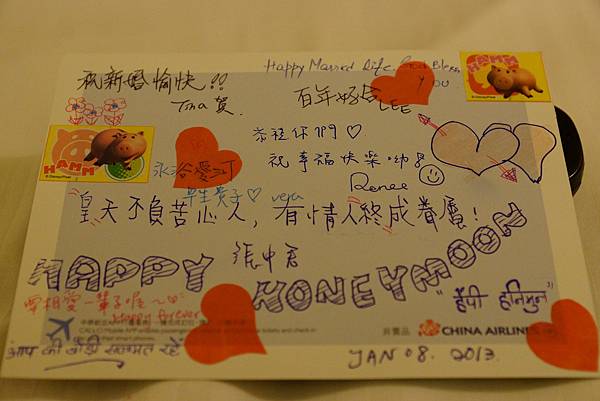 祝新婚愉快!!
Tina 賀.
Happy Married life. God Bless
YOU
百年好合
LEE
HAMM
HAMM
恭禧你們 ♡
祝幸福快樂呦!
Renee
永浴愛河
早生貴子♡ veja
皇天不負苦心人，有情人終成眷屬!
HAPPY
HONEYMOON
要相愛一輩子喔
Happy forever
"हैप्पी हनिमुन"
非賣品
CHINA AIRLINES
आप की जोड़ी सलामत रहे
JAN 08. 2013.